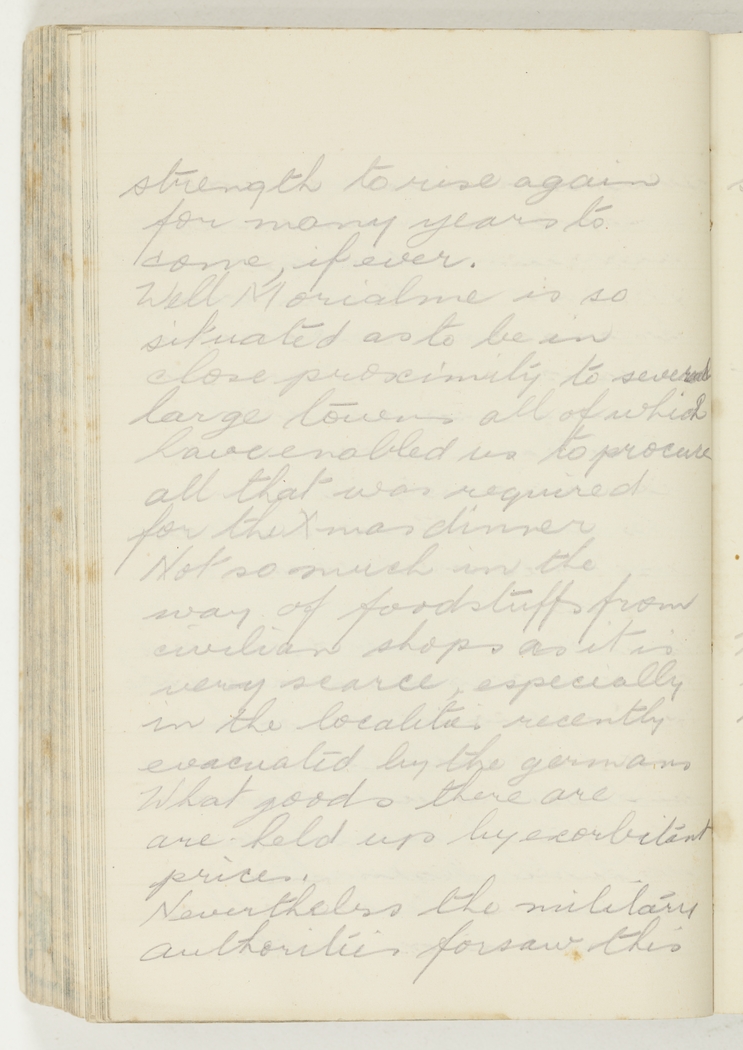 strength to rise again
for many years to
come, if ever.
Well Morialme is so
situated as to be in
close proximity to several
large towns all of which
have enabled us to procure
all that was required
for the Xmas dinner
Not so much in the
way of foodstuffs from
civilian shops as it is
very scarce, especially
in the localities recently
evacuated by the germans
What goods there are
are held up by exorbitant
prices.
Nevertheless the military
authorities forsaw this